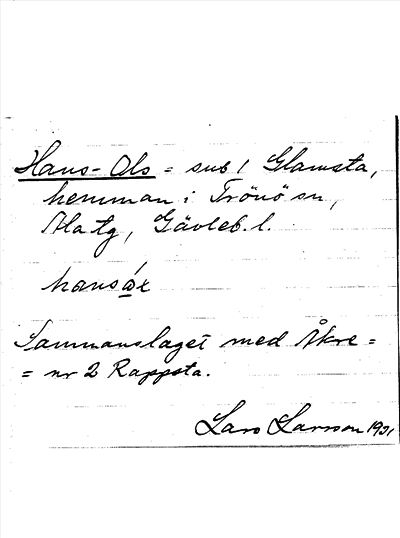 Hans-Ols = sub 1 Glamsta,
hemman i Trönö sn,
Ala tg, Gävleb. l.
Sammanslaget med Åkre =
= nr 2 Rappsta.
Lars Larsson 1931